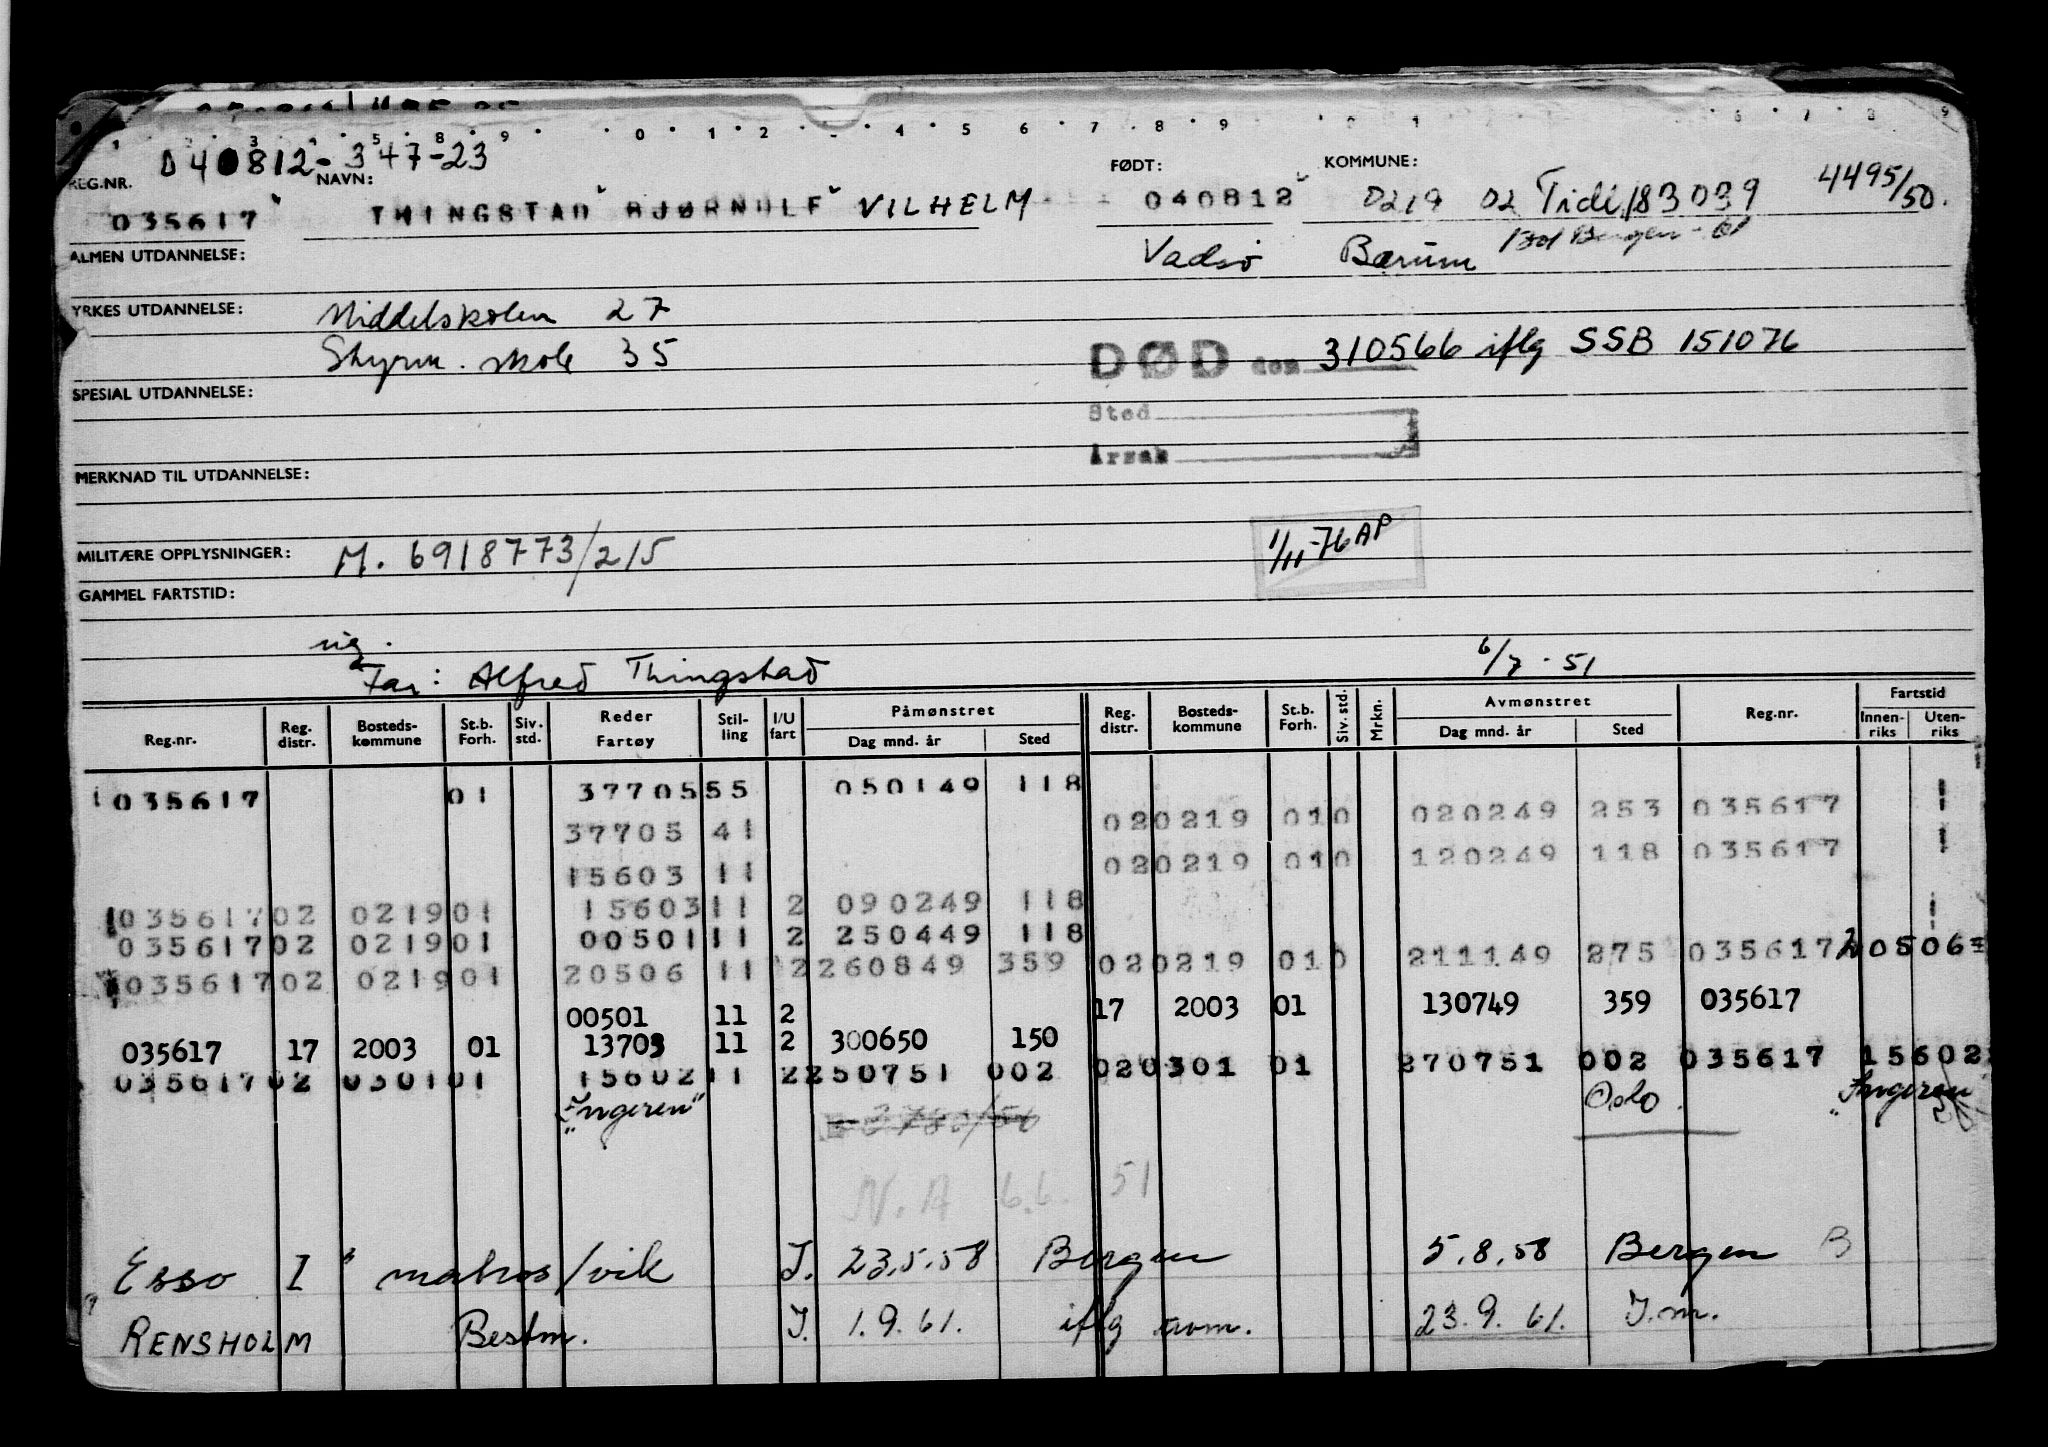 040812-347-23
REG.NR. NAVN: FØDT: KOMMUNE:
035617 THINGSTAD BJØRNULF VILHELM 040812 0219 02 Tidl 183039 4495/50.
ALMEN UTDANNELSE: Vadsö Bærum
YRKES UTDANNELSE: Middelskolen 27
Styrm. skole 35 DØD den 310566 iflg SSB 151076
SPESIAL UTDANNELSE: Sted
Årsak
MERKNAD TIL UTDANNELSE:
MILITÆRE OPPLYSNINGER: M. 6918773/215 1/11-76 AP
GAMMEL FARTSTID:
Far: Alfred Thingstad 6/7-51
Reg.nr. Reg. distr. Bosteds-kommune St.b. Forh. Siv. std. Reder Fartøy Stil-ling I/U fart Påmønstret Dag mnd. år Sted Reg. distr. Bosteds-kommune St.b. Forh. Siv. std. Mrkn. Avmønstret Dag mnd. år Sted Reg.nr. Fartstid Innen-riks Uten-riks
035617 01 37705 55 050149 118
37705 41 020219 010 020249 253 035617
15603 11 020219 010 120249 118 035617
035617 02 0219 01 15603 11 2 090249 118
035617 02 0219 01 00501 11 2 250449 118
035617 02 0219 01 20506 11 2 260849 359 020219 010 211149 275 035617 20506
00501 11 2 17 2003 01 130749 359 035617
035617 17 2003 01 13703 11 2 300650 150
035617 02 0301 01 15602 11 2 250751 002 020301 01 270751 002 035617 15602
"Ingeren" Oslo. "Ingeren"
N.A 6.6. 51
Esso I" matros/vik I. 23.5.58 Bergen 5.8.58 Bergen B
RENSHOLM Bestm. I. 1.9.61. iflg 23.9.61. I.m.